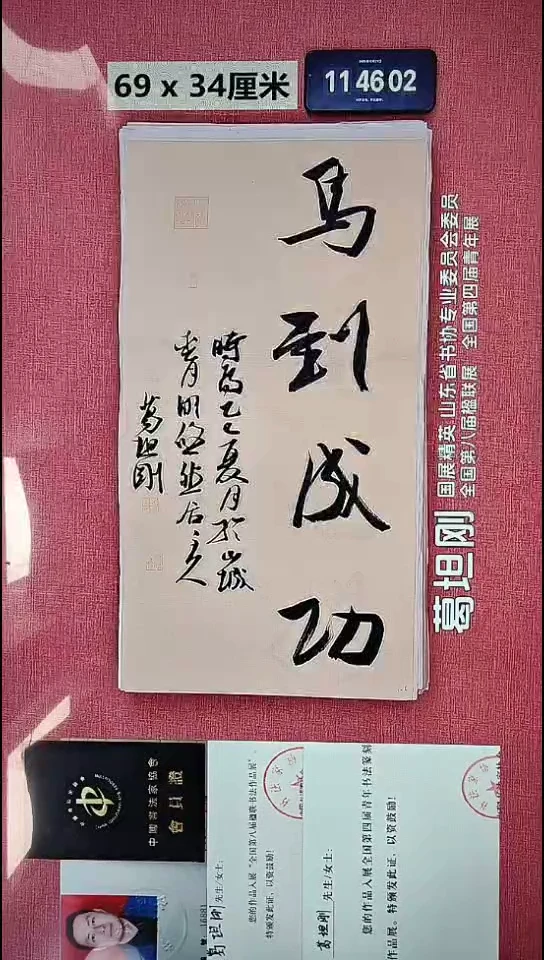 69 x 34厘米
11 46 02
马到成功
時為乙巳夏月於山城
悠然居主人
葛坦刚
国展精英 山东省书协专业委员会委员
全国第八届楹联展 全国第四届青年展
葛坦刚
中國書法家協會
會員證
16881
葛坦刚 先生/女士：
您的作品入展“全国第八届楹联书法作品展”，
特颁发此证，以资鼓励！
葛坦刚 先生/女士：
您的作品入展全国第四届青年书法篆刻
作品展。特颁发此证，以资鼓励！